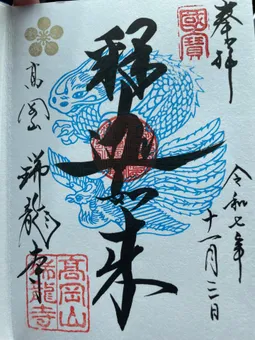 奉拝
國寳
令和七年
十一月三日
釋迦如来
高岡山
瑞龍寺
高岡山
瑞龍寺